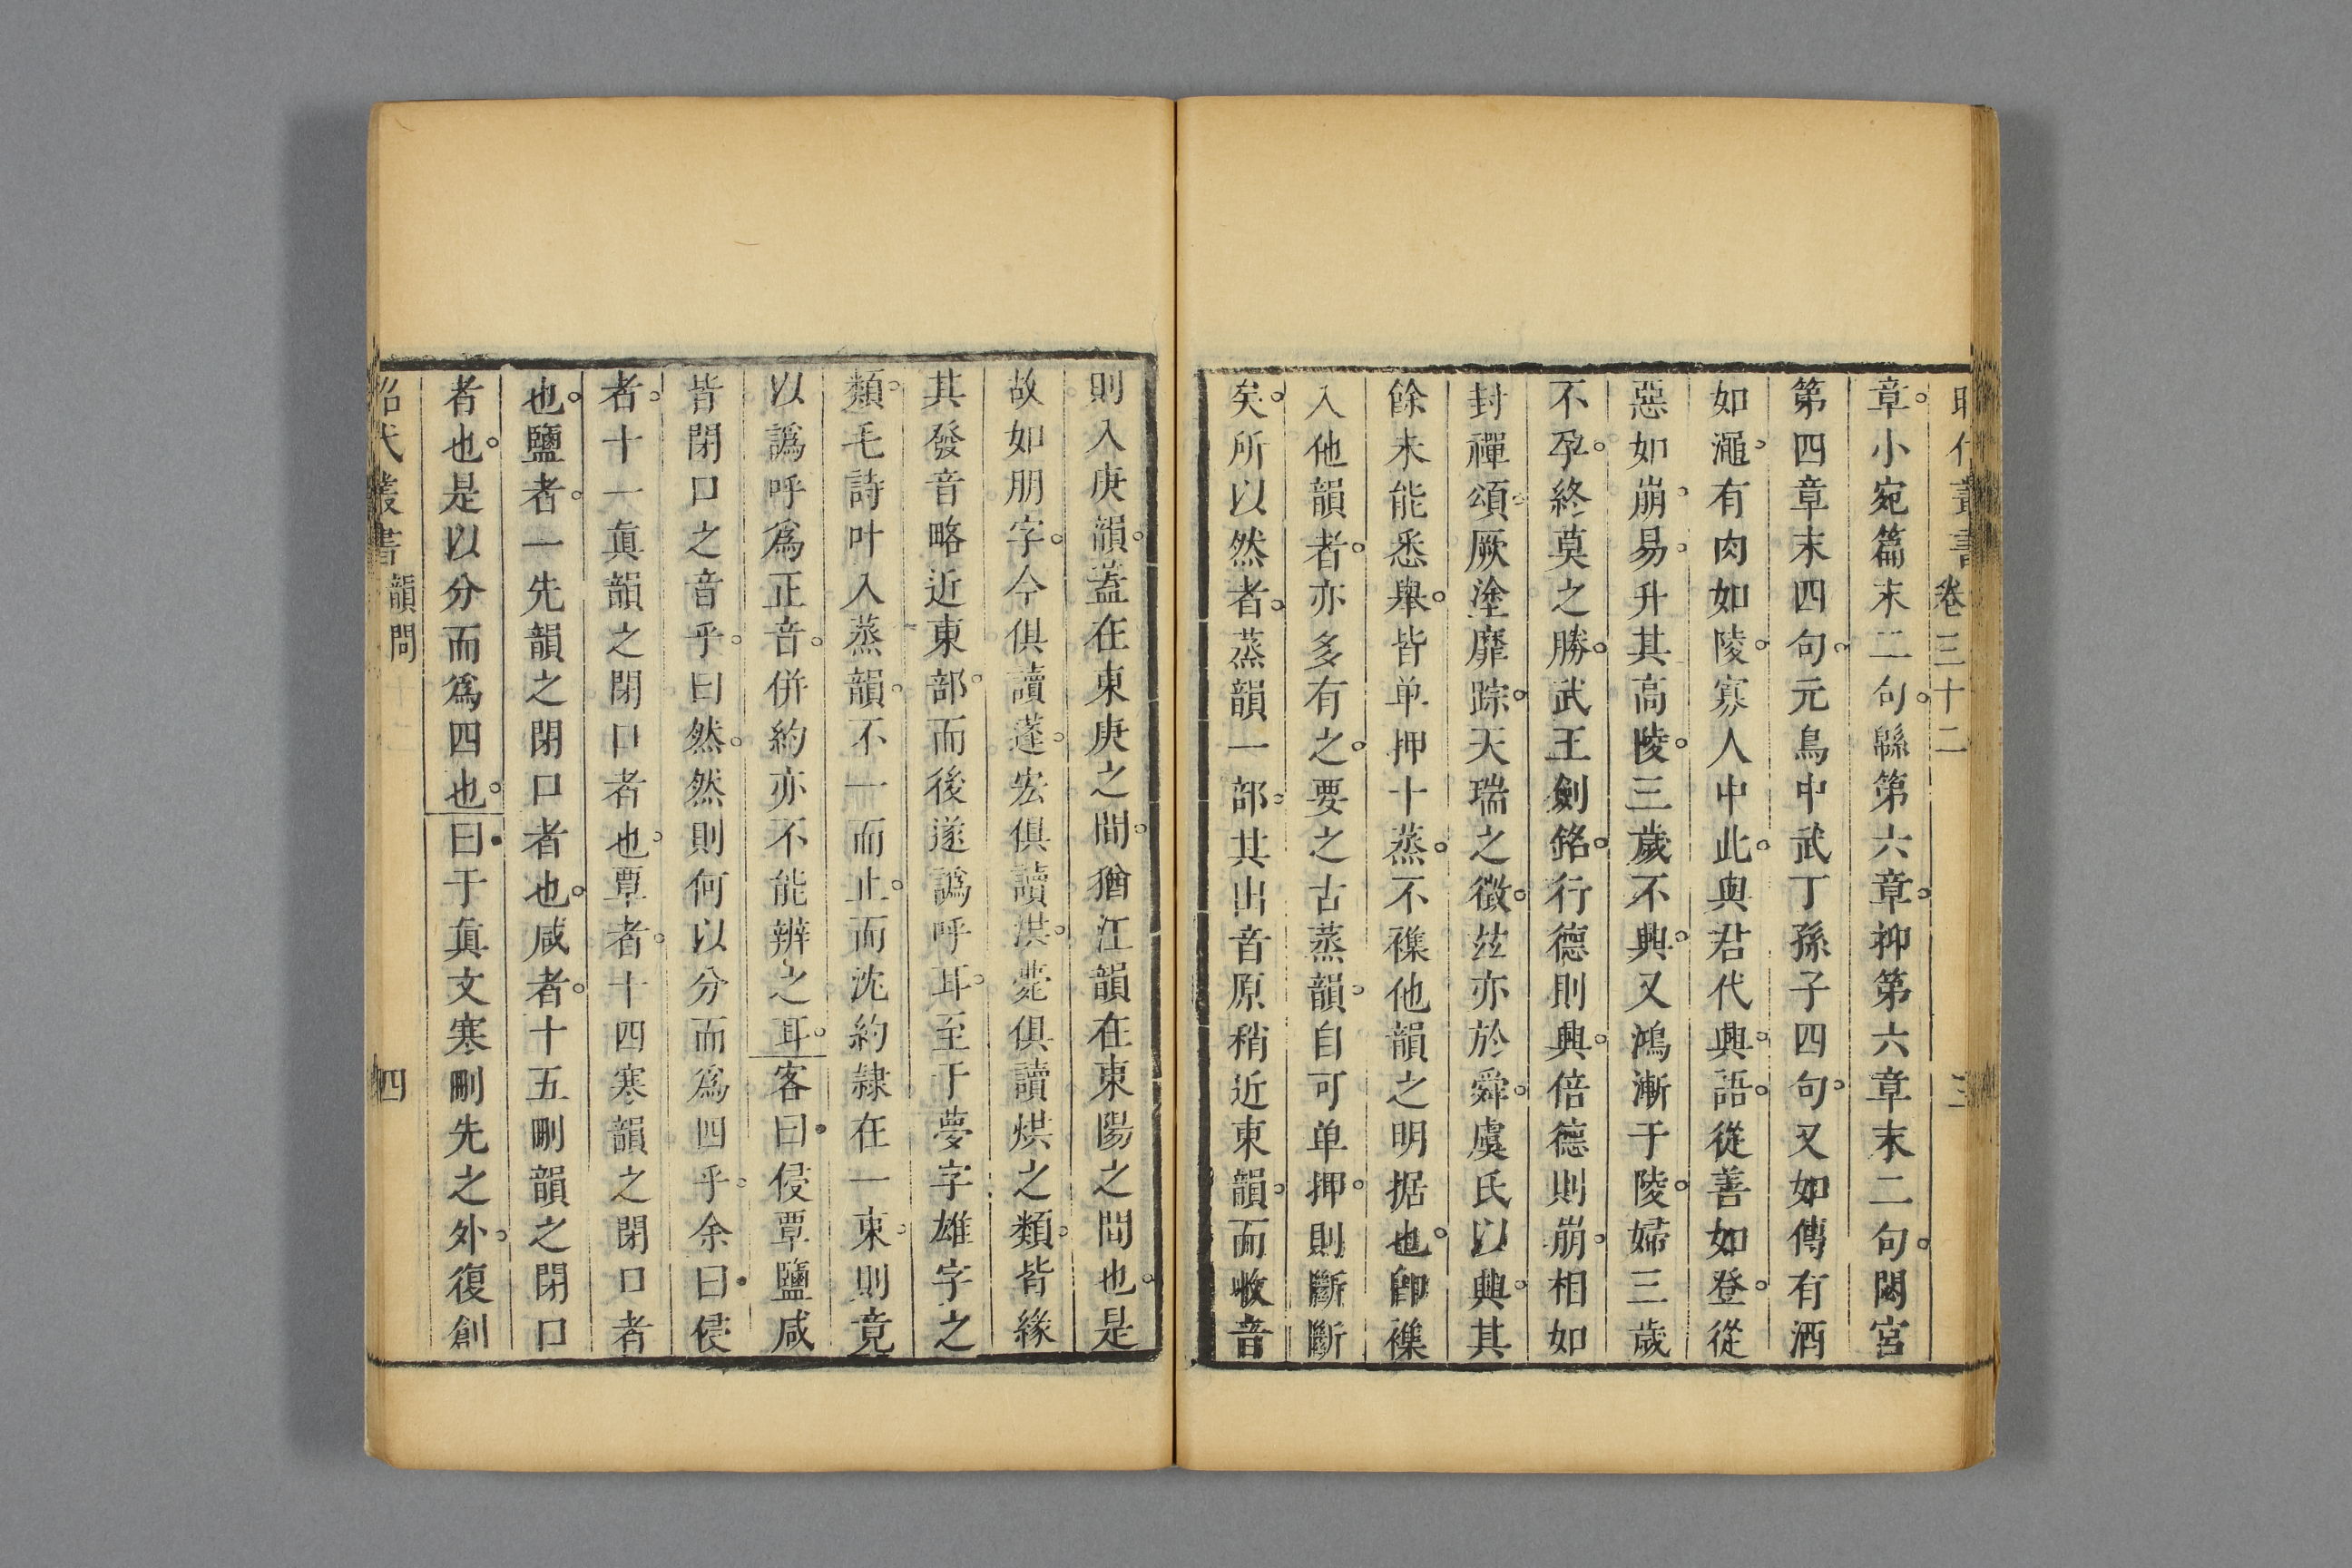 昭代叢書 卷三十二 三
章。小宛篇末二句。緜第六章。抑第六章末二句。閟宮
第四章末四句。元鳥中武丁孫子四句。又如傳有酒
如澠。有肉如陵。寡人中此。與君代興。語。從善如登。從
惡如崩。易。升其高陵。三歲不興。又鴻漸于陵。婦三歲
不孕。終莫之勝。武王劍銘。行德則興。倍德則崩。相如
封禪頌。厥塗靡踪。天瑞之徵。茲亦於舜。虞氏以興。其
餘未能悉舉。皆单押十蒸。不襍他韻之明据也。卽襍
入他韻者。亦多有之。要之古蒸韻。自可单押。則斷斷
矣。所以然者。蒸韻一部。其出音原稍近東韻。而收音
則入庚韻。蓋在東庚之間。猶江韻在東陽之間也。是
故如朋字。今俱讀蓬。宏俱讀洪。薨俱讀烘之類。皆緣
其發音略近東部。而後遂譌呼耳。至于夢字雄字之
類。毛詩叶入蒸韻。不一而止。而沈約隸在一東。則竟
以譌呼爲正音。併約亦不能辨之耳。客曰侵覃鹽咸
皆閉口之音乎。曰然。然則何以分而爲四乎。余曰侵
者。十一眞韻之閉口者也。覃者。十四寒韻之閉口者
也。鹽者。一先韻之閉口者也。咸者。十五刪韻之閉口
者也。是以分而爲四也。曰于眞文寒刪先之外。復創
昭代叢書 韻問 四